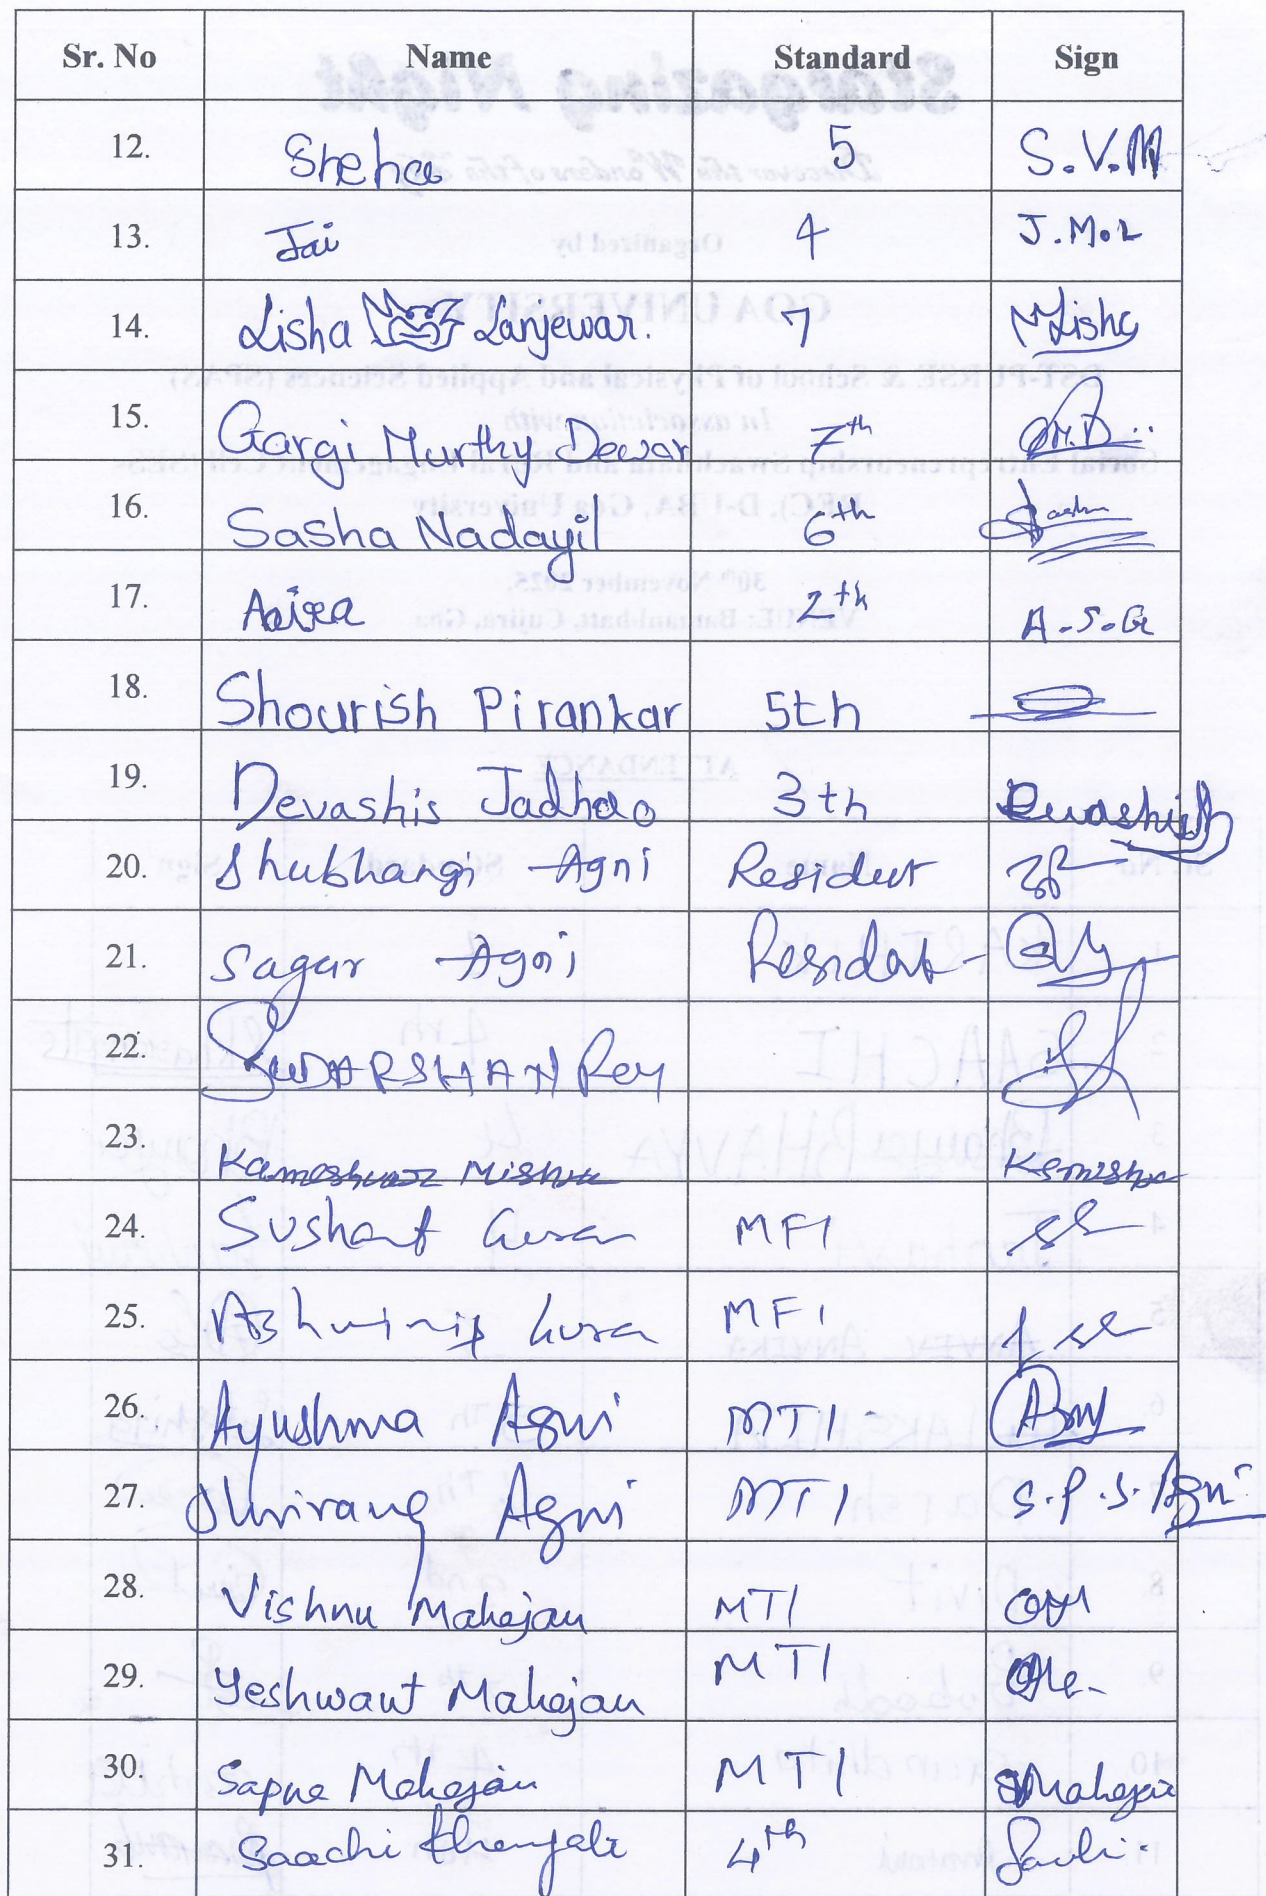 Sr. No Name Standard Sign
12. Sneha 5 S.V.M
13. Jai 4 J.M.L
14. Lisha Lanjewar. 7 Lisha
15. Gargi Murthy Dewar 7th
16. Sasha Nadayil 6th Sasha
17. Aaira 2th A.S.G
18. Shourish Pirankar 5th
19. Devashis Jadhao 3th Devashish
20. Shubhangi Agni Resident
21. Sagar Agni Resident
22. SUDARSHAN Rey
23. Kameshwar Mishra Kamishra
24. Sushant MFI
25. MFI
26. Ayushma Agni MTI Agni
27. Shrirang Agni MTI S.P.S. Agni
28. Vishnu Mahajan MTI
29. Yeshwant Mahajan MTI
30. Sapna Mahajan MTI SMahajan
31. Saachi 4th Sachi